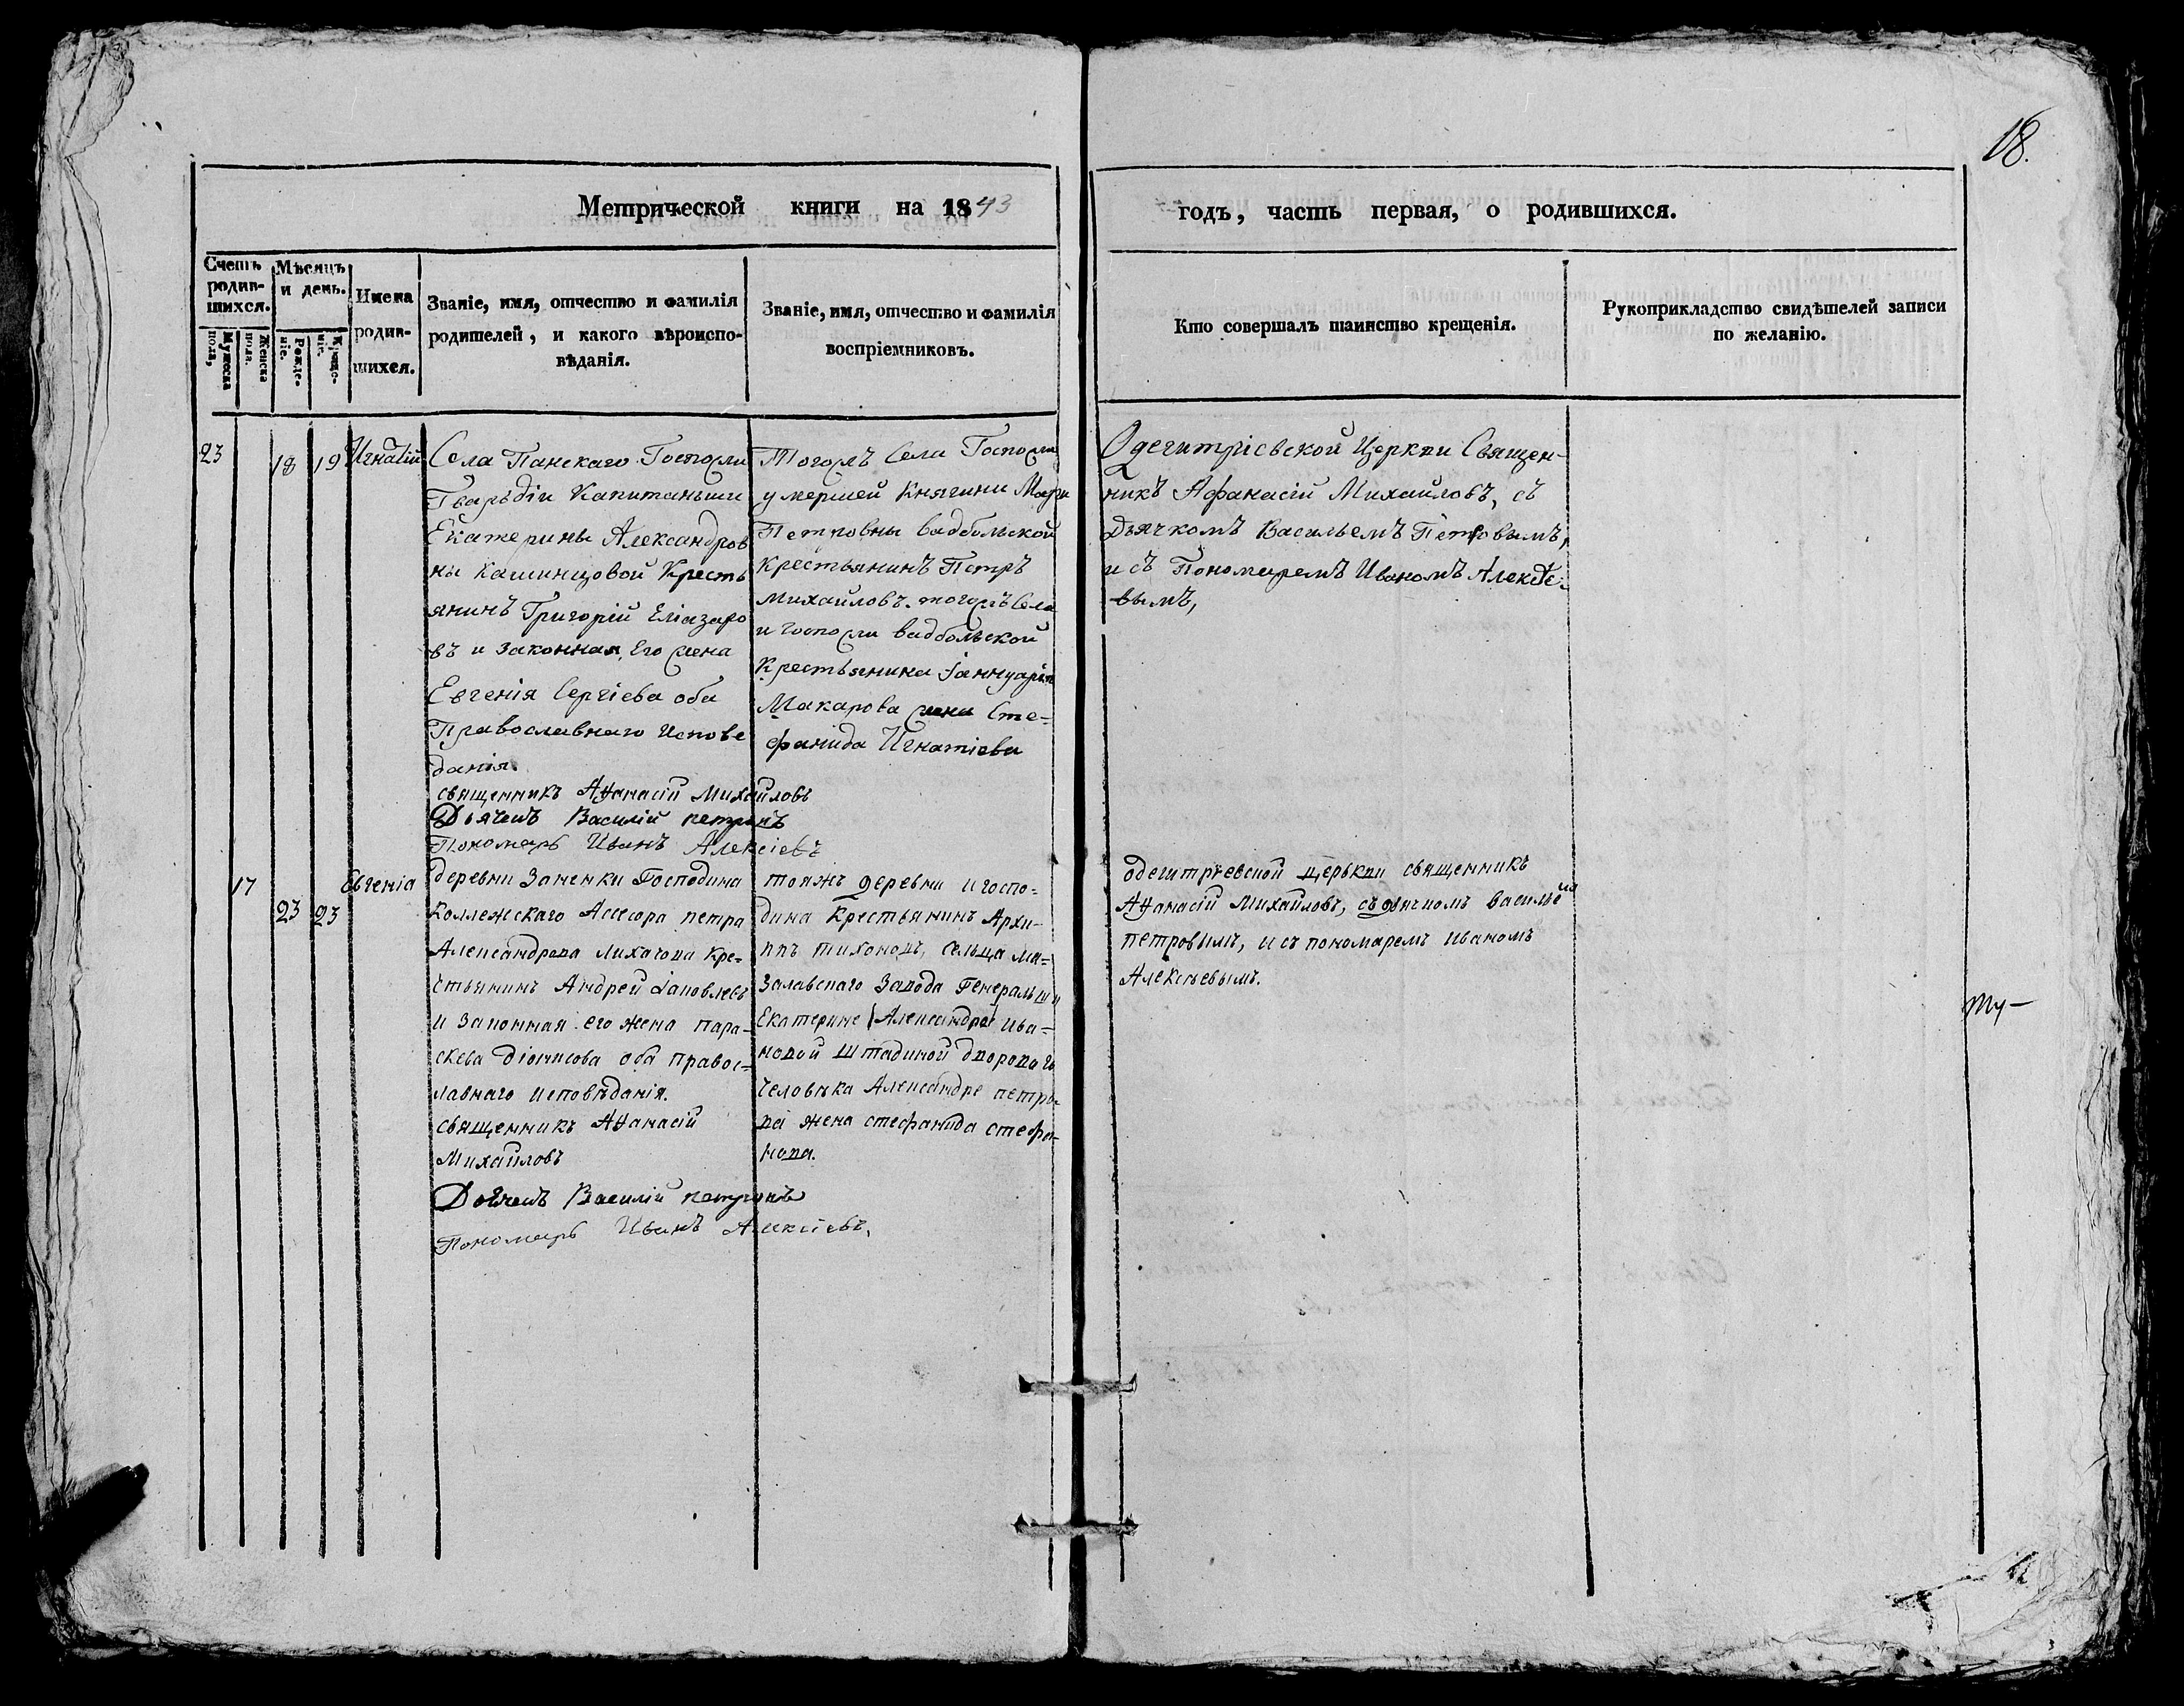 18.
Метрической книги на 1843
годъ, часть первая, о родившихся.
Счетъ родив-шихся.
Мужеска пола,
Женска пола.
Мѣсяцъ и день.
Рожде-ніе.
Креще-ніе.
Имена родив-шихся.
Званіе, имя, отчество и фамилія
родителей, и какого вѣроиспо-
вѣданія.
Званіе, имя, отчество и фамилія
воспріемниковъ.
Кто совершалъ таинство крещенія.
Рукоприкладство свидѣтелей записи
по желанію.
23
18
19
Игнатій
Села Панскаго Госпожи
Гвардіи Капитаньши
Екатерины Александров
ны Кашинцовой Кресть
янинъ Григорій Еліазаро
въ и законная Его жена
Евгенія Сергіева оба
Православнаго Испове
данія.
священникъ Аѳанасій Михайловъ
Дьячекъ Василій петровъ
Пономарь Иванъ Алексіевъ
Тогожъ Села Госпожи
умершей Княгини Марьи
Петровны Вадбольской
Крестьянинъ Петръ
Михайловъ. тогожъ Села
и госпожи вадбольской
Крестьянина Іаннуарія
Макарова жена Сте=
фанида Игнатіева
Одегитріевской Церкви Священ-
никъ Афанасій Михайловъ, съ
Дьячкомъ Васильемъ Петровымъ,
и съ Пономаремъ Иваномъ Алексѣе-
вымъ,
17
23
23
Евгеніа
деревни Господина
Коллежскаго Ассесора петра
Александрова Лихачова Кре=
стьянинъ Андрей Іаковлевъ
и законная его жена пара-
скева діонисова оба правос=
лавнаго исповѣданія.
священникъ Аѳанасій
Михайловъ
Дьячекъ Василій петровъ
Пономарь Иванъ Алексіевъ,
тояжъ деревни и госпо=
дина Крестьянинъ Архи-
ппъ тихоновъ, сельца ма=
Завода Генеральши
Екатерине Александре Ива=
новой двороваго
человѣка Александре петро-
ва жена стефанида стефа-
нова.
одегитріевской церькви священникъ
Аѳанасій Михайловъ, съ дьячкомъ васильемъ
петровымъ, и съ пономаремъ иваномъ
Алексѣевымъ.